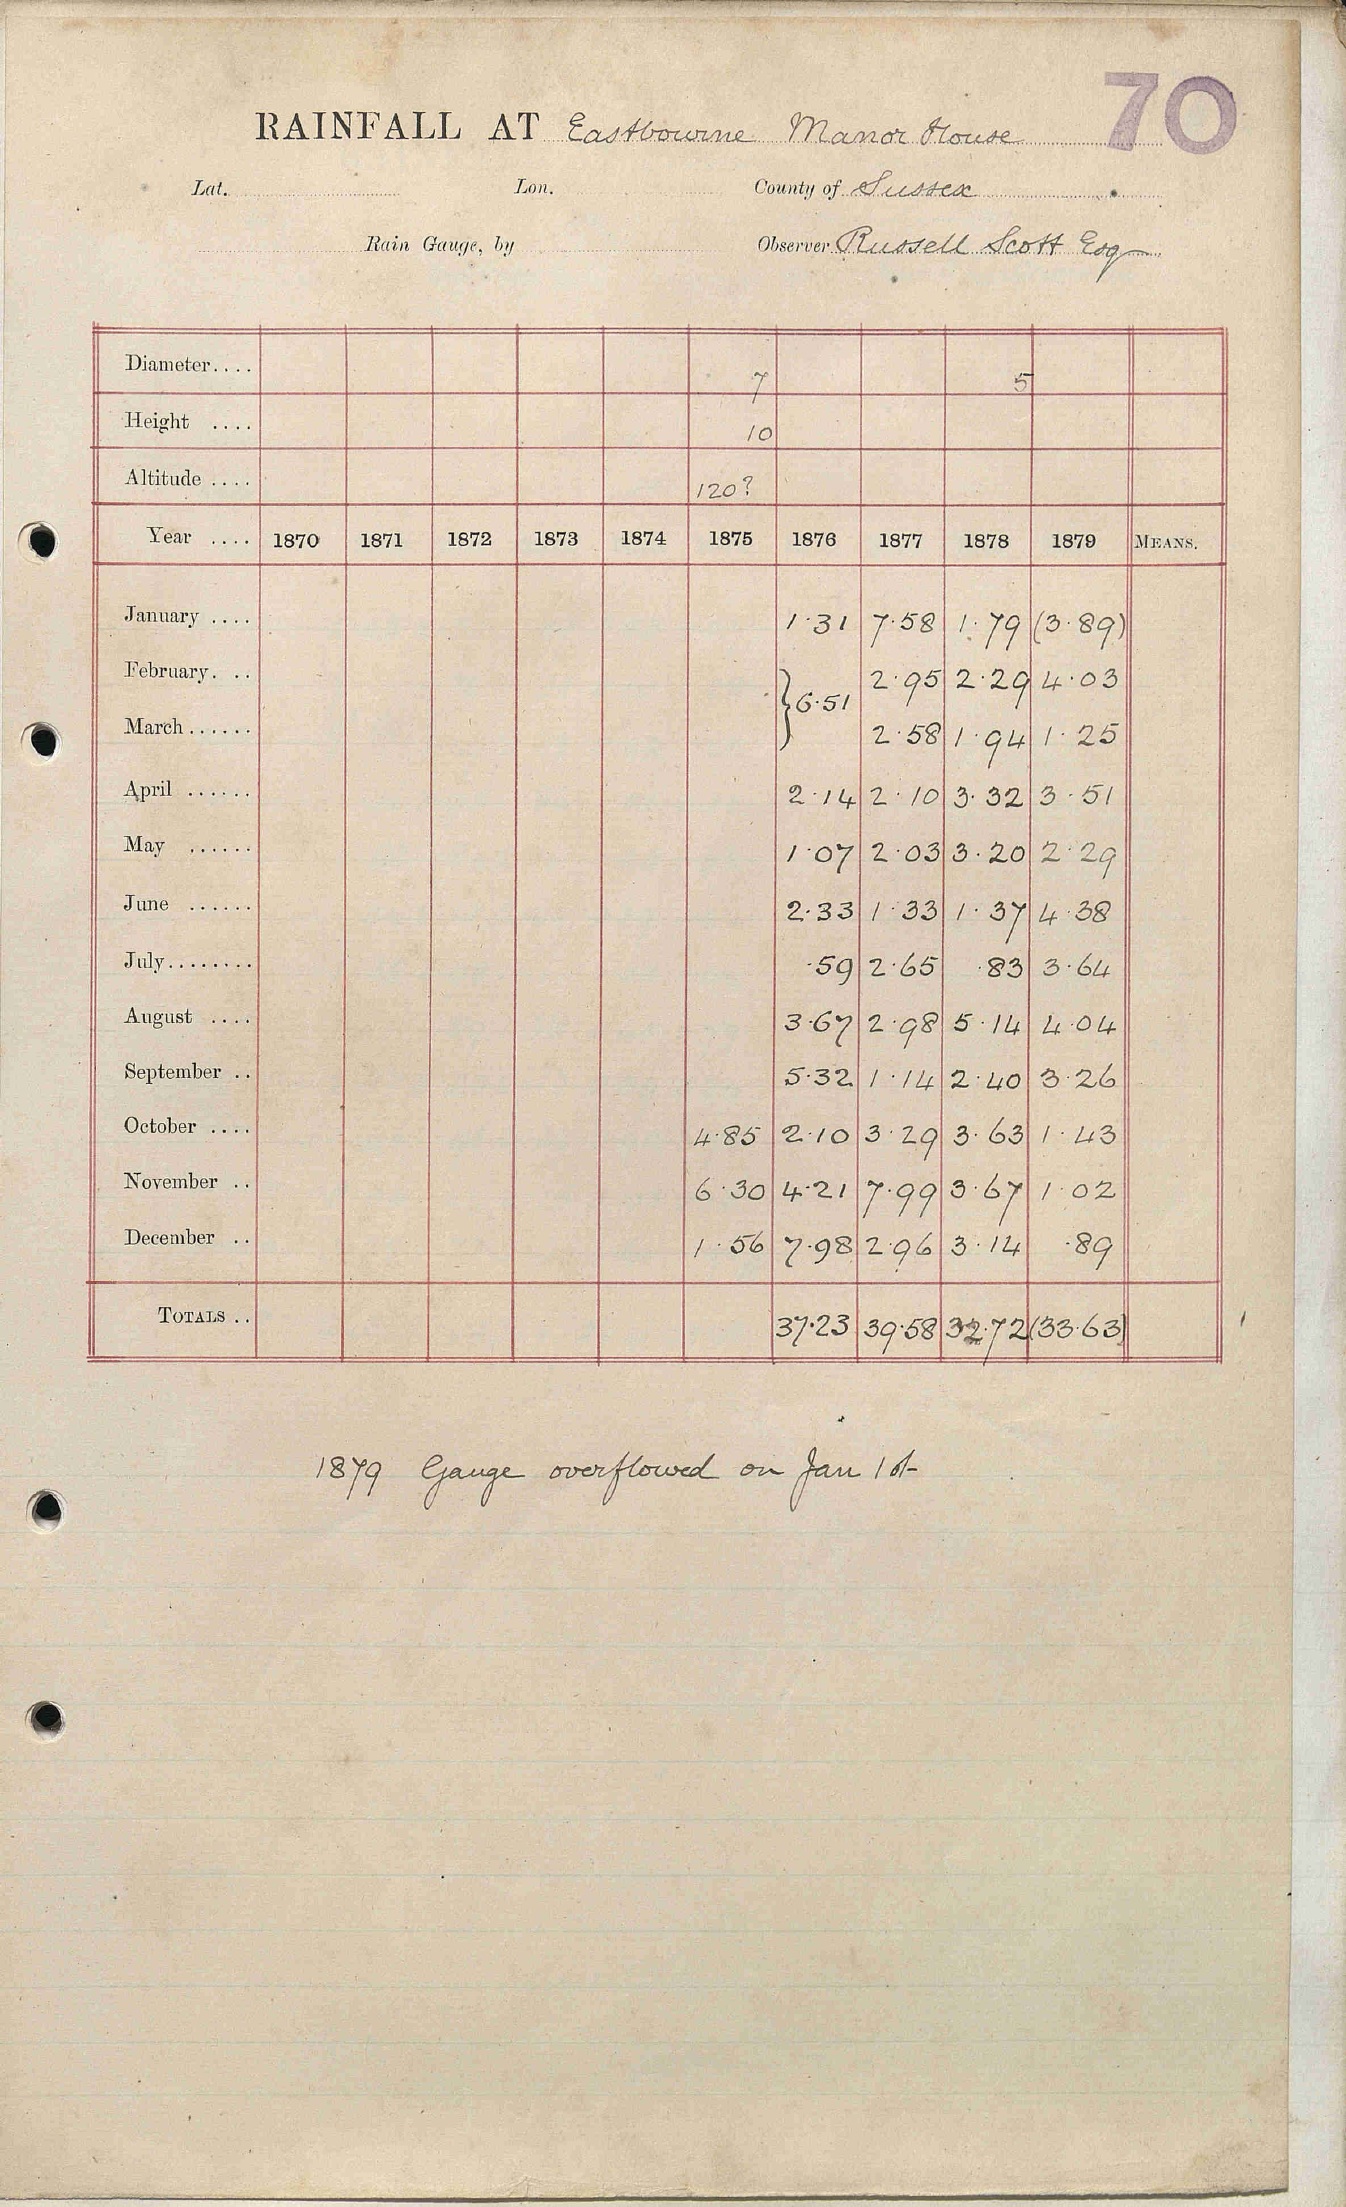 70
RAINFALL AT Eastbourne Manor House
Lat. Lon. County of Sussex
Rain Gauge, by Observer Russell Scott Esq
Diameter.... 7 5
Height .... 10
Altitude .... 120?
Year .... 1870 1871 1872 1873 1874 1875 1876 1877 1878 1879 MEANS.
January .... 1.31 7.58 1.79 (3.89)
February. .. } 6.51 2.95 2.29 4.03
March...... 2.58 1.94 1.25
April ...... 2.14 2.10 3.32 3.51
May ...... 1.07 2.03 3.20 2.29
June ...... 2.33 1.33 1.37 4.38
July........ .59 2.65 .83 3.64
August .... 3.67 2.98 5.14 4.04
September .. 5.32 1.14 2.40 3.26
October .... 4.85 2.10 3.29 3.63 1.43
November .. 6.30 4.21 7.99 3.67 1.02
December .. 1.56 7.98 2.96 3.14 .89
TOTALS .. 37.23 39.58 32.72 (33.63)
1879 Gauge overflowed on Jan 1st